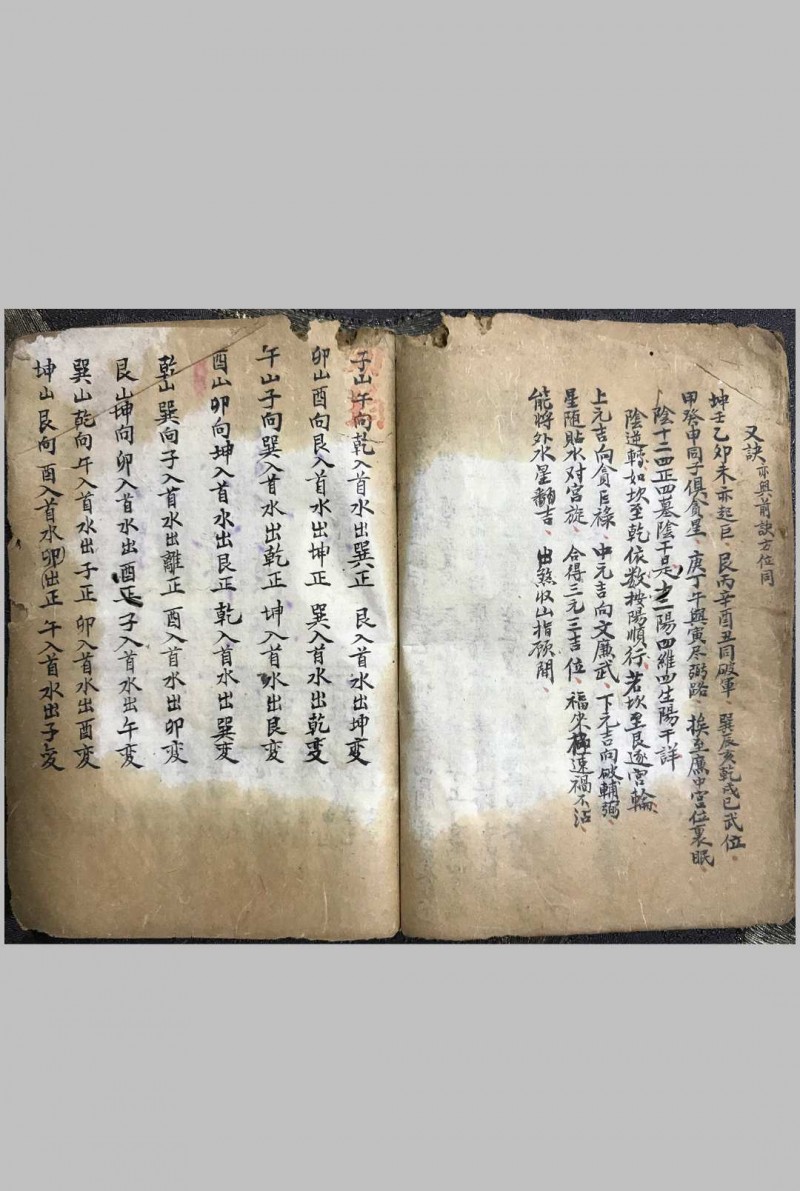 又訣亦與前訣方位同
坤壬乙卯未亦起巨、艮丙辛酉丑同破軍、巽辰亥乾戌巳武位、
甲癸申同子俱貪星、庚丁午與寅尽弼路、挨至廉中宮位裏眠、
陰十二四正四墓陰干是、十二陽四維四生陽干詳
陰逆轉如坎至乾依数按陽順行、若坎至艮逐宮輪、
上元吉向貪巨祿、中元吉向文廉武、下元吉向破輔弼、
星随貼水对宮旋、合得三元三吉位、福來極速禍不沾、
能將外水星翻吉、出煞收山指顾間、
子山午向乾入首水出巽正 艮入首水出坤变
卯山酉向艮入首水出坤正 巽入首水出乾变
午山子向巽入首水出乾正 坤入首水出艮变
酉山卯向坤入首水出艮正 乾入首水出巽变
乾山巽向子入首水出離正 酉入首水出卯变
艮山坤向卯入首水出酉正 子入首水出午变
巽山乾向午入首水出子正 卯入首水出酉变
坤山艮向酉入首水卯出正 午入首水出子变